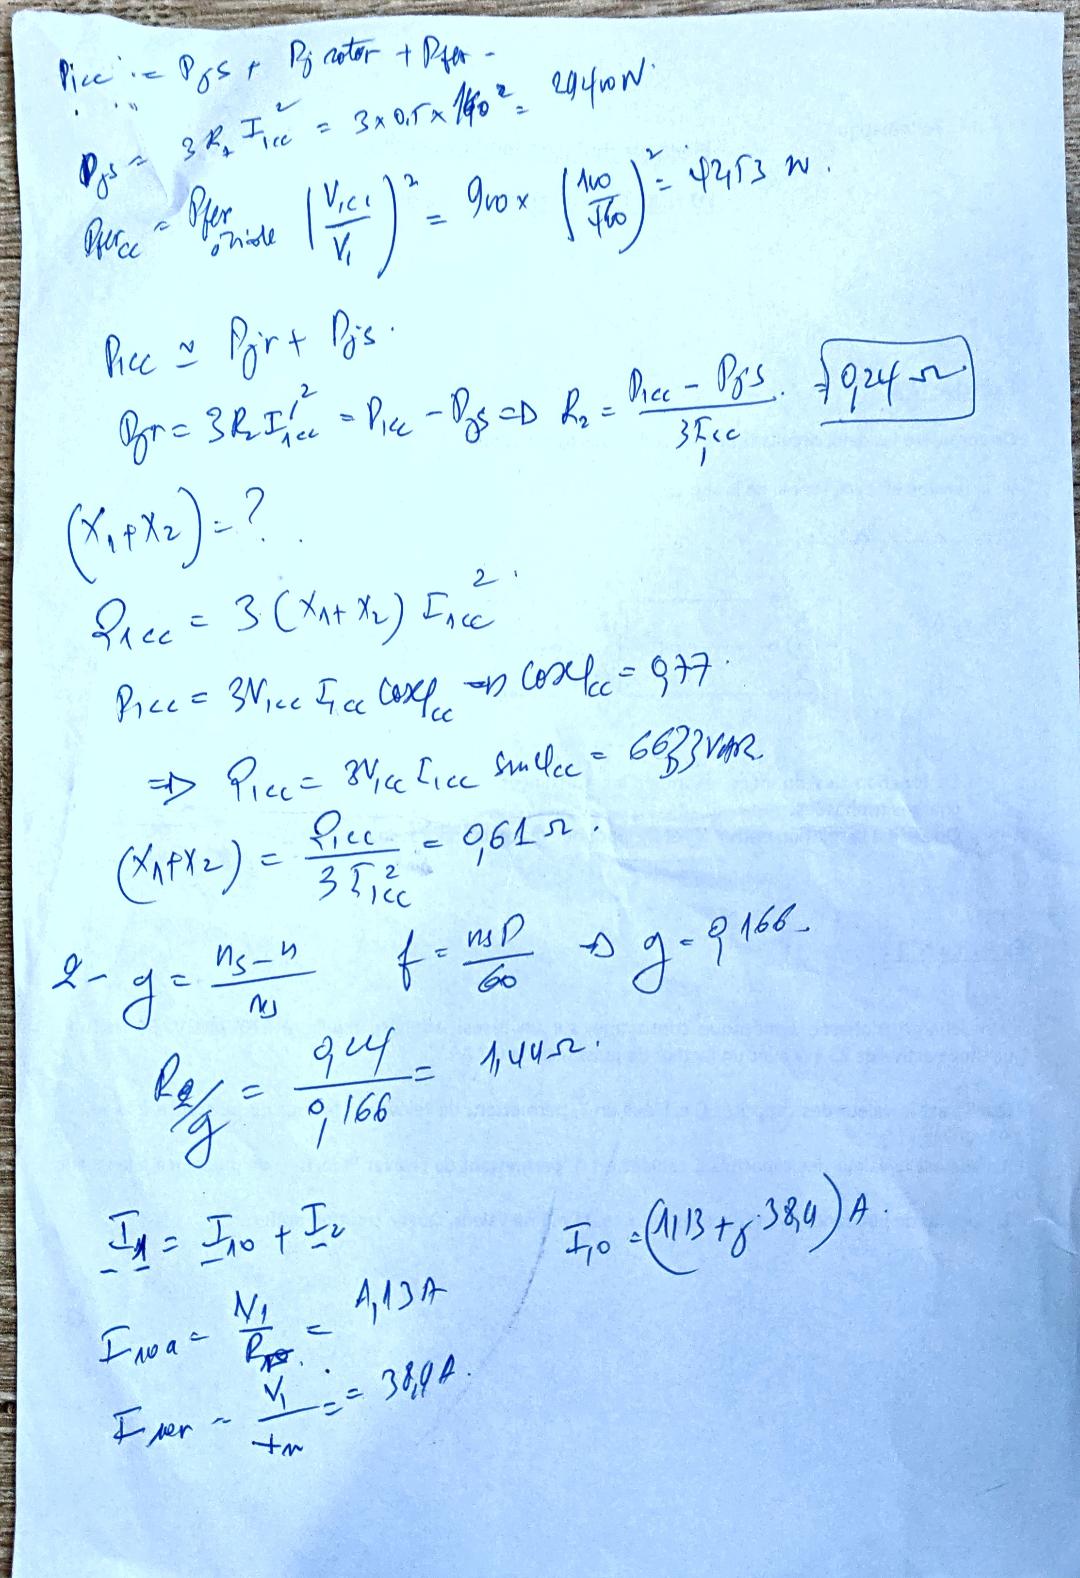 P1cc = Pjs + Pj rotor + Pfer
Pjs = 3 R1 I1cc² = 3 x 0,5 x 140² = 29400 W.
Pfercc = Pfer à vide (V1cc / V1)² = 900 x ( / )² = 42,53 W.
P1cc ≃ Pjr + Pjs.
Pjr = 3R2 I'1cc² = P1cc - Pjs => R2 = (P1cc - Pjs) / 3I1cc = 0,24 Ω
(X1+X2) = ?
Q1cc = 3 (X1+X2) I1cc²
P1cc = 3V1cc I1cc cosφcc => cosφcc = 0,77.
=> Q1cc = 3V1cc I1cc sinφcc = VAR
(X1+X2) = Q1cc / 3I1cc² = 0,61 Ω.
2- g = (ns - n) / ns f = ns P / 60 => g = 0,166
R2/g = 0,24 / 0,166 = 1,44 Ω.
I1 = I10 + I2 I10 = (1,13 + j 38,9) A.
I10a = V1 / = 1,13A
I10r = V1 / = 38,9 A.